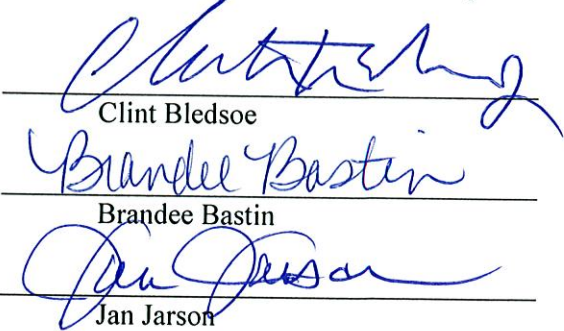 Clint Bledsoe
Brandee Bastin
Brandee Bastin
Jan Jarson
Jan Jarson